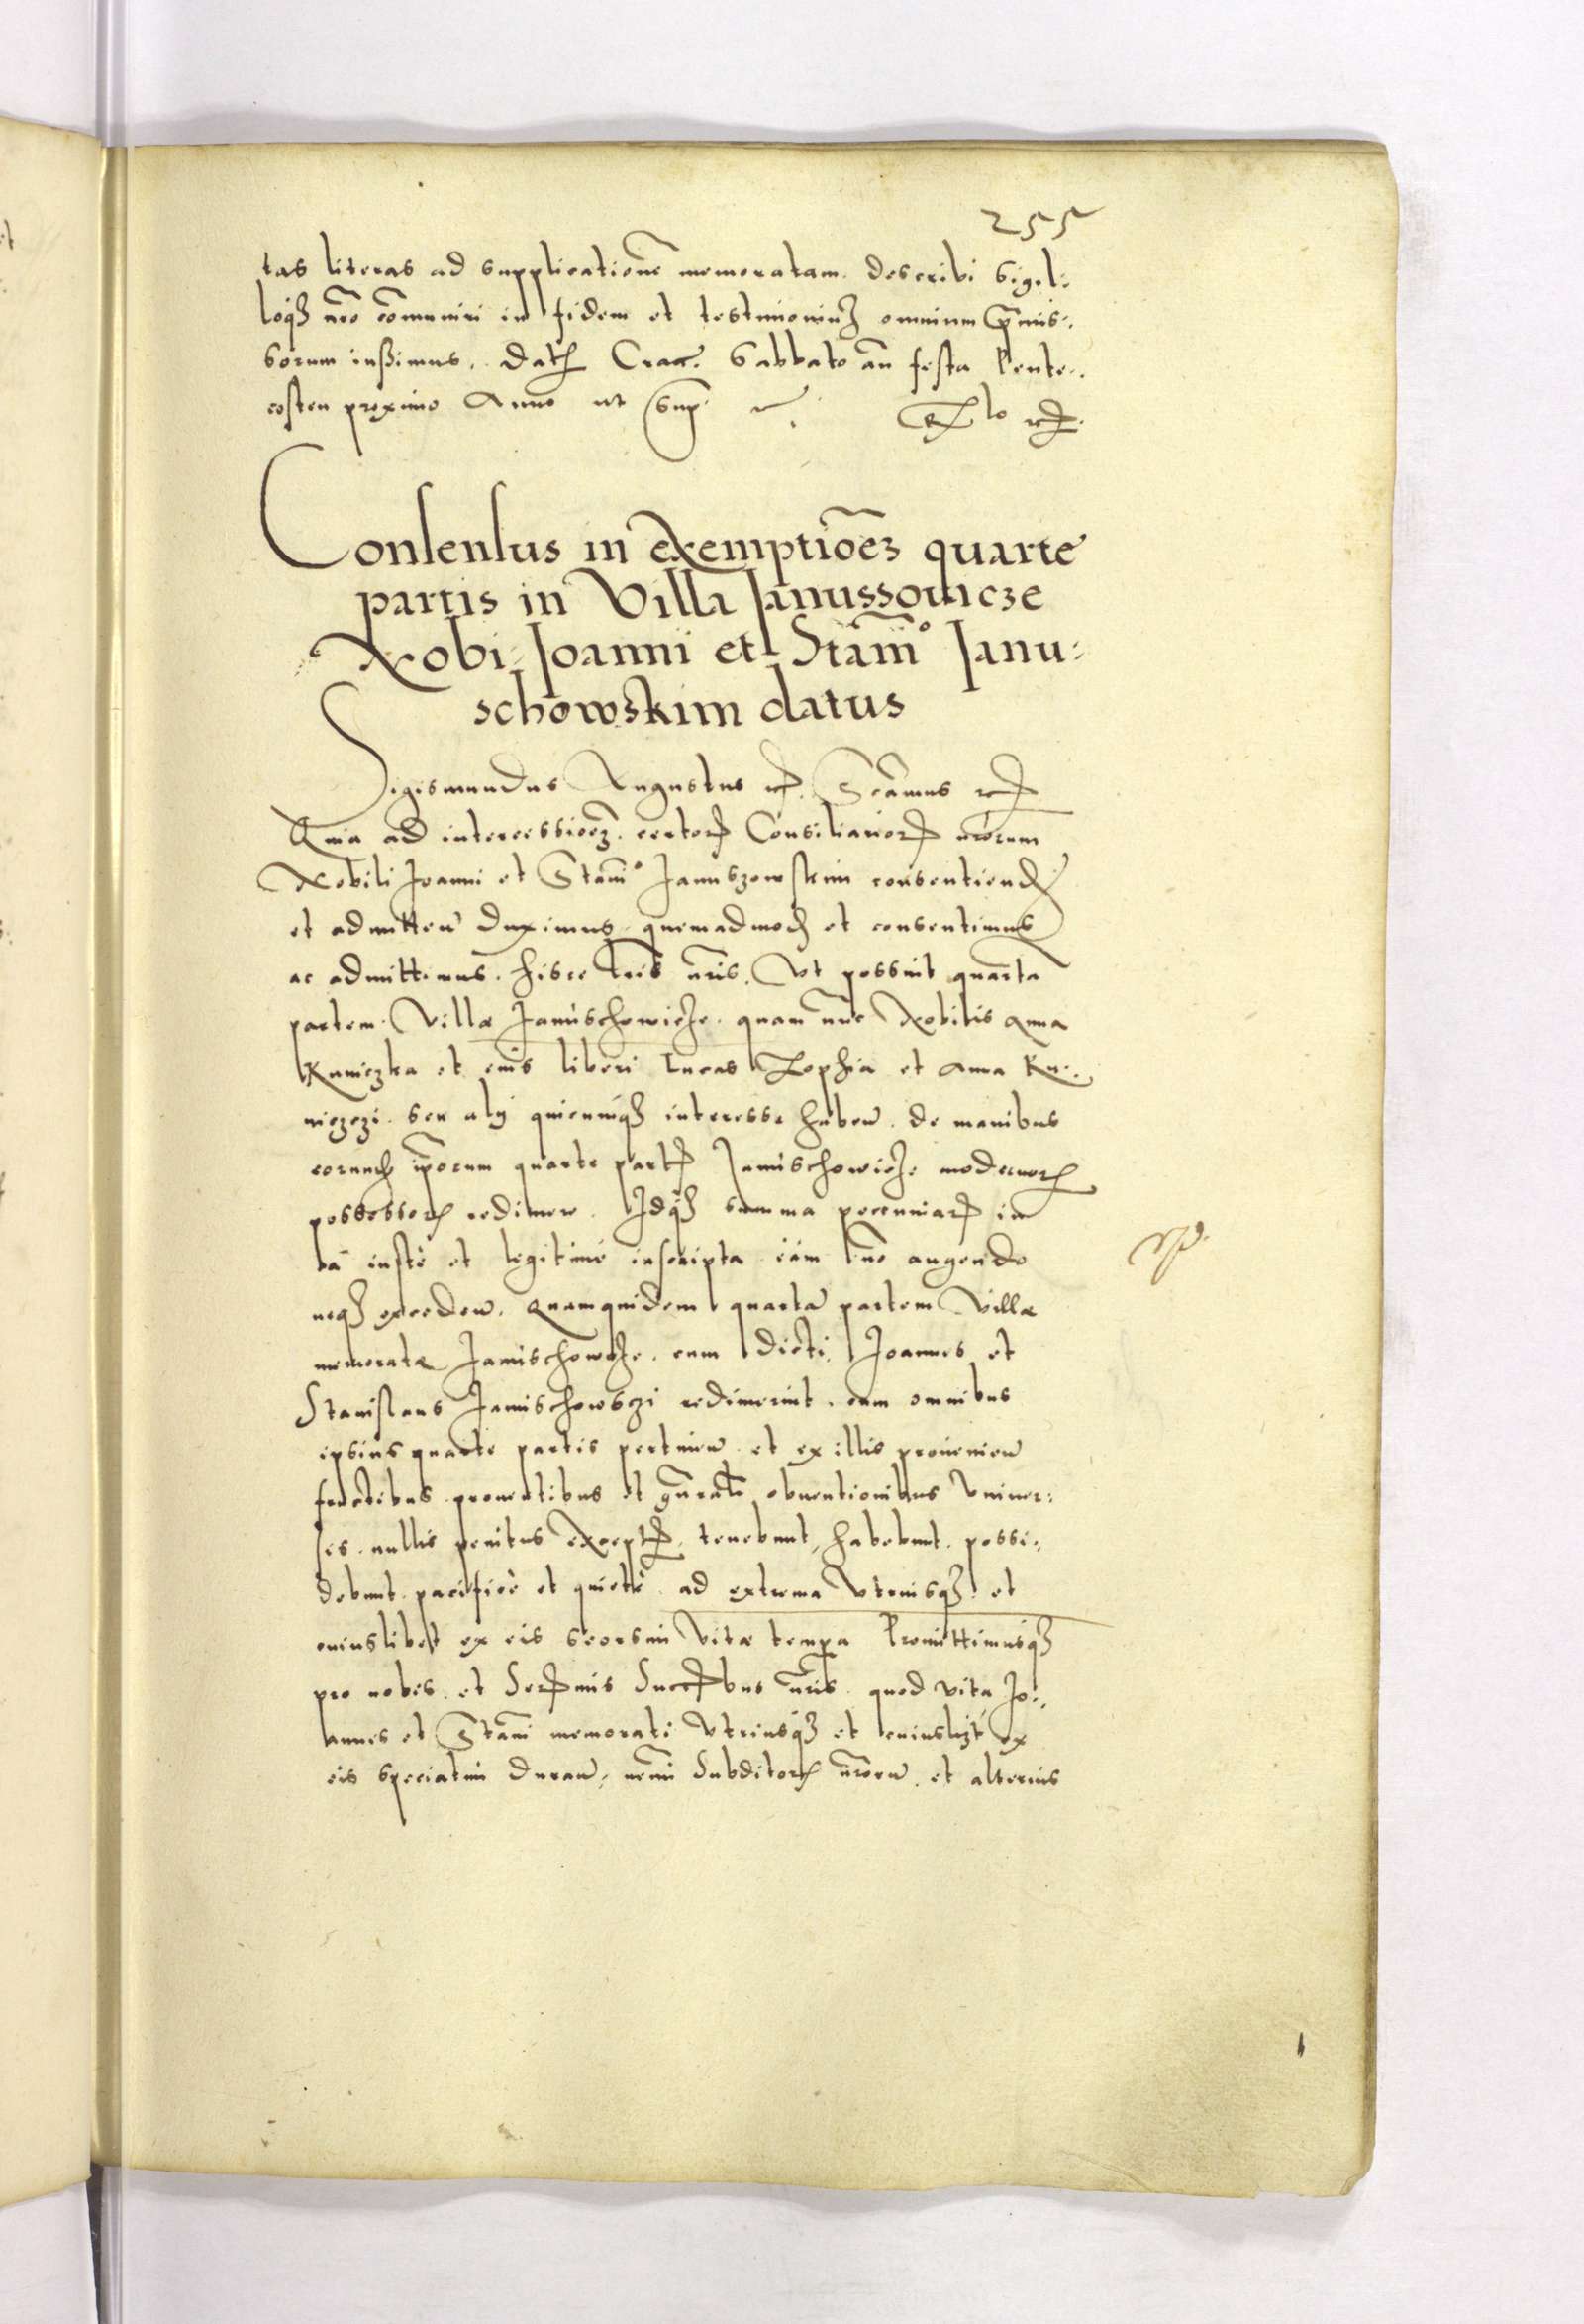 255
tas literas ad supplicationē memoratam describi sigil:
loq₃ nr̄o cōmuniri in fidem et testimoniu₃ omnium p̄mis:
sorum iussimus. Dat Crac. Sabbato an̄ festa Pente:
costen proximo Anno ut sup̄
Consensus in exemptiōe₃ quarte
partis in Villa Janussowicze
Nobi: Joanni et Stam̄° Janu:
schowskim datus
Sigismundus Augustus rx. Sēamus rx
Quia ad intercessioe₃ certor Consiliarior nrōrum
Nobili Joanni et Stam̄° Januszowskim consentiend
et admitten̄ duximus quemadmod et consentimus
ac admittimus hisce lr̄is nr̄is. Vt possint quartā
partem Villæ Januschowicze quam nūc Nobilis Anna
Kuniczka et eius liberi Lucas Zophia et Anna Ku:
niczczi seu alij quicunq₃ interesse haben̄. de manibus
eorund ip̄orum quarte part Januschowicze modernor
possessor redimere. Idq₃ summa pecuniar in
ea iuste et legitime inscripta eam nō augendo
neq₃ exceden̄. Quamquidem quartā partem Villæ
memoratæ Januschowicze. cum dicti Joannes et
Stanislaus Januschowsczi redimerint. cum omnibus
ipsius quarte partis pertinen̄ et ex illis prouenien̄
fructibus prouentibus et gn̄ralr̄ obuentionibus Vniuer:
sis. nullis penitus except. tenebunt, habebunt. possi:
debunt. pacifice et quiete ad extrema Vtriusq₃ et
cuiuslibet ex eis seorsim Vitæ tempa Promittimusq₃
pro nobis et Ser̄mis Succ̄bus nr̄is. quod vita Jo:
annis et Stan̄i memorati Vtriusq₃ et cuiusli₃t ex
eis speciatim duran̄, nem̄i Subditor nr̄oru et alterius